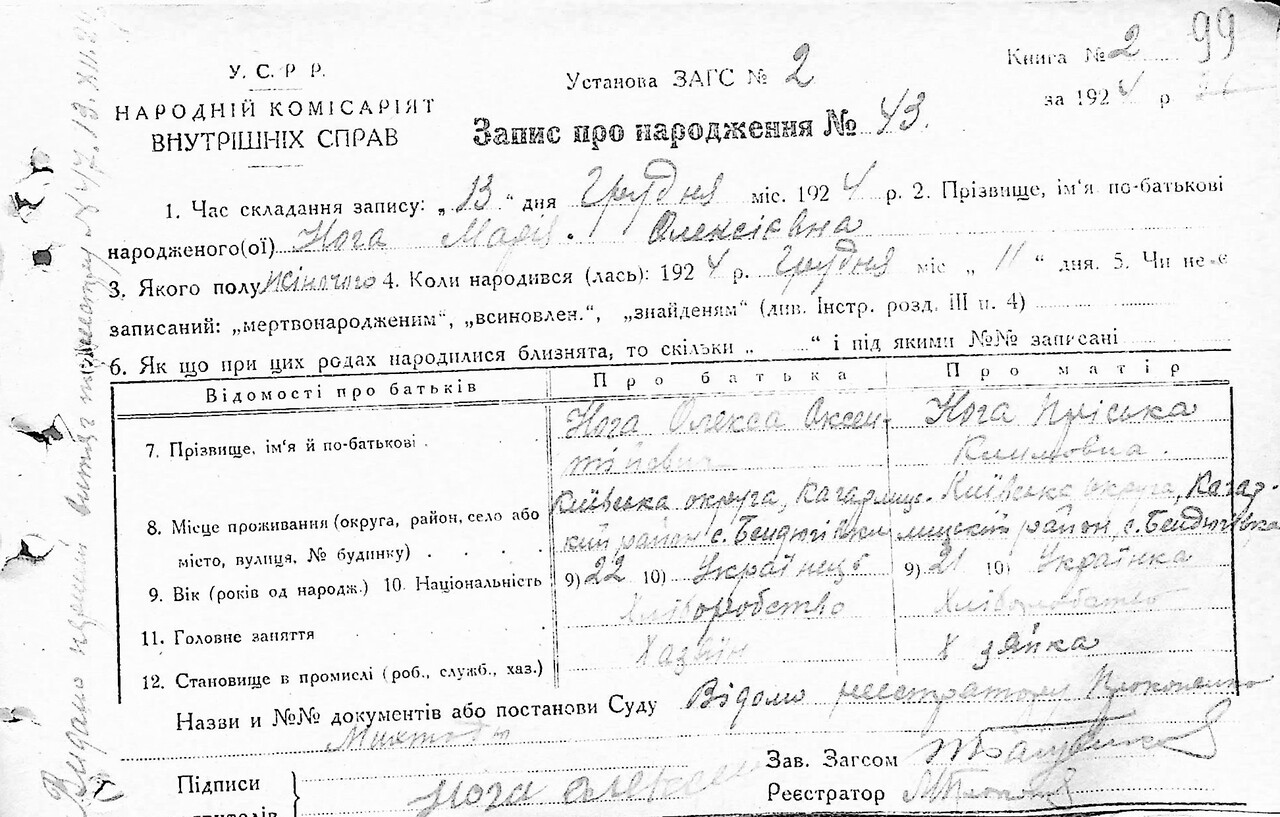 У. С. Р Р.
НАРОДНІЙ КОМІСАРІЯТ
ВНУТРІШНІХ СПРАВ
Установа ЗАГС № 2
Запис про народження № 43.
Книга № 2 99
за 1924 р
1. Час складання запису: „13“ дня Грудня міс. 1924 р. 2. Прізвище, ім'я по-батькові
народженого(ої) Нога Марія Олексієвна
3. Якого полу Жіночого 4. Коли народився (лась): 1924 р. Грудня міс „11“ дня. 5. Чи не є
записаний: „мертвонародженим“, „всиновлен.“, „знайденям“ (див. Інстр. розд. III п. 4)
6. Як що при цих родах народилися близнята, то скільки „ “ і під якими №№ записані
Відомості про батьків Про батька Про матір
7. Прізвище, ім'я й по-батькові Нога Олекса Оксен- Нога Пріська
Климовна.
Київська округа, Кагарлиц- Київська округа, Кагар-
8. Місце проживання (округа, район, село або кий район с. Бендюгівки лицький район, с. Бендюгівка
місто, вулиця, № будинку)
9. Вік (років од народж.) 10. Національність 9) 22 10) Українець 9) 21 10) Українка
11. Головне заняття Хліборобство Хліборобство
12. Становище в промислі (роб., служб., хаз.) Хазяїн Х зяйка
Назви и №№ документів або постанови Суду Відомо реєстратору Прокопенко
Підписи Нога Олексей
Зав. Загсом
Реєстратор
Видано витяг №47. 13.XII.24